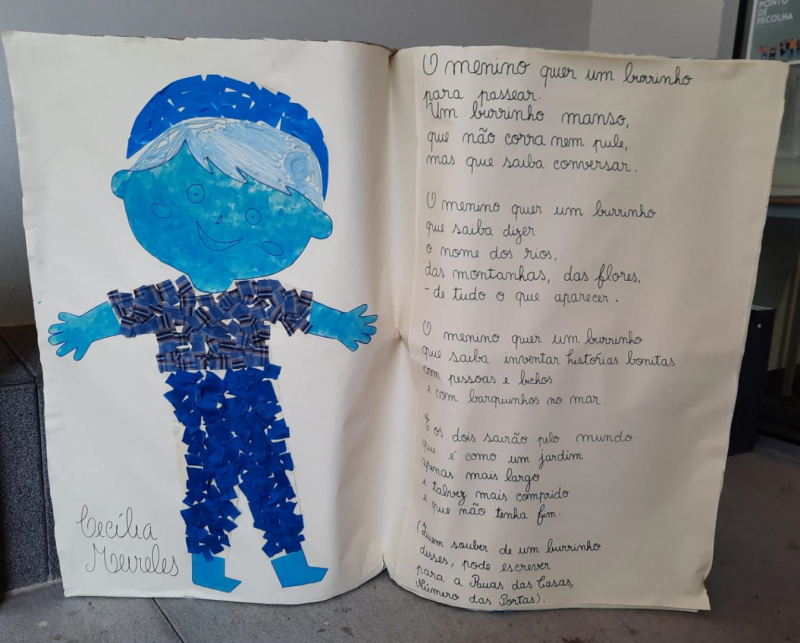 PONTO
DE
RECOLHA
Cecília
Meireles
O menino quer um burrinho
para passear.
Um burrinho manso,
que não corra nem pule,
mas que saiba conversar.
O menino quer um burrinho
que saiba dizer
o nome dos rios,
das montanhas, das flores,
- de tudo o que aparecer.
O menino quer um burrinho
que saiba inventar histórias bonitas
com pessoas e bichos
e com barquinhos no mar.
E os dois sairão pelo mundo
que é como um jardim
apenas mais largo
e talvez mais comprido
e que não tenha fim.
(Quem souber de um burrinho
desses, pode escrever
para a Ruas das Casas,
Número das Portas).